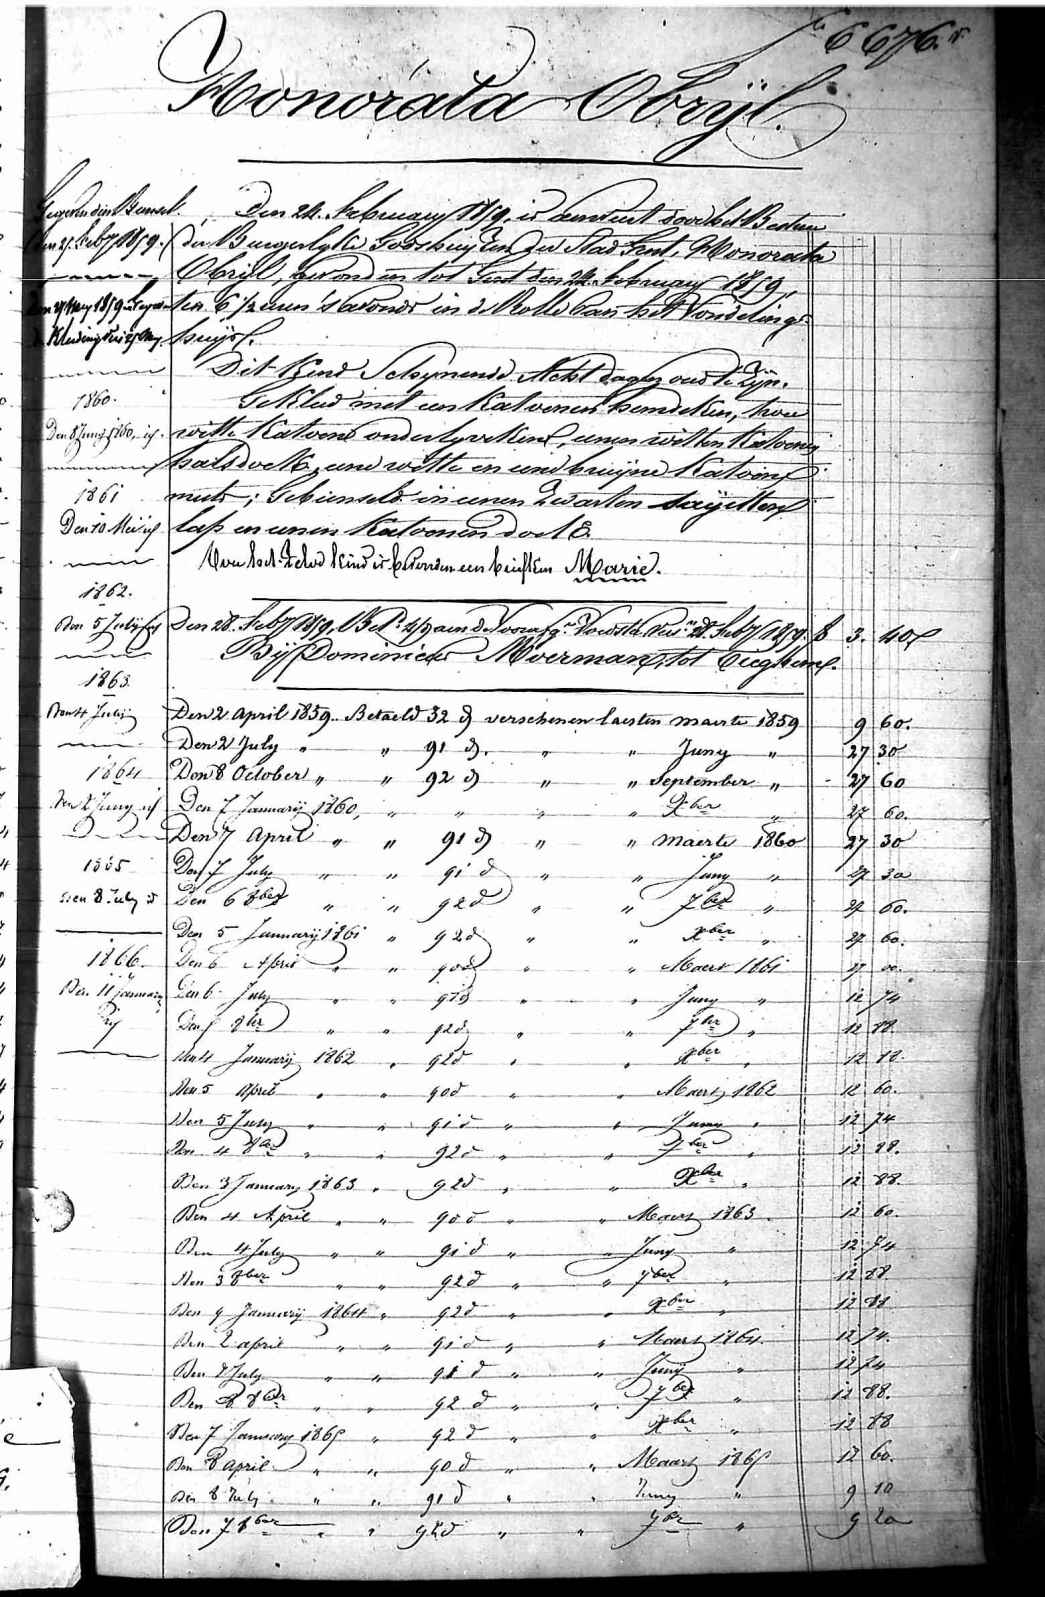 6676.
Honorata Obrijl.
Den 24. February 1859, is aenveert door het Bestuer
der Burgerlyke Godshuyzen der Stad Gent, Honorata
Obrijl, gevonden tot Gent den 24. February 1859,
ten 6 1/2 uren 's avonds in de Rolle van het Vondelings-
huijs.
Dit Kind Schynende Acht dagen oud te Zyn.
Gekleed met een Katoenen hemdeken, twee
witte Katoene onderlyvekens, eenen witten Katoenen
halsdoek, eene witte en eene bruijne Katoene
muts; Gebienseld in eenen Zwarten sayetten
lap en eenen Katoenen doek.
Van het Zelve Kind is bevonden een briefken Marie.
Den 28. Feby 1859, aen de Voorsz. 28. Feby 1859. 3. 40
Bij Dominicus Moerman, tot
Den 2 April 1859. Betaeld 32 d verschenen laesten maerte 1859 9 60.
Den 2 July " " 91 d. " " Juny " 27 30
Den 8 October " " 92 d " " September " 27 60
Den 7 Januarij 1860, " " " " Xber " 27 60.
Den 7 April " " 91 d " " maerte 1860 27 30
Den 7 July " " 91 d " " Juny " 27 30
Den 6 8ber " " 92 d " " 7ber " 27 60.
Den 5 Januarij 1861 " 92 d " " Xber " 27 60.
Den 6 April " " 90 d " " Maert 1861 27 00.
Den 6 July " " 91 d " " Juny " 12 74
Den 8ber " " 92 d " " 7ber " 12 88.
Den 4 Januarij 1862 " 92 d " " Xber " 12 88.
Den 5 April " " 90 d " " Maert 1862 12 60.
Den 5 July " " 91 d " " Juny " 12 74
Den 4 8ber " " 92 d " " 7ber " 12 88.
Den 3 January 1863 " 92 d " " Xber " 12 88.
Den 4 April " " 90 d " " Maert 1863. 12 60.
Den 4 July " " 91 d " " Juny " 12 74
Den 3 8ber " " 92 d " " 7ber " 12 88
Den 9 Januarij 1864 " 92 d " " Xber " 12 88
Den 2 april " " 91 d " " Maert 1864. 12 74.
Den 8 July " " 91 d " " Junij " 12 74
Den 8 8ber " " 92 d " " 7ber " 12 88.
Den 7 January 1865 " 92 d " " Xber " 12 88
Den 8 April " " 90 d " " Maert 1865 12 60.
Den 8 July " " 91 d " " Juny " 9 10
Den 7 8ber " " 92 d " " 7ber " 9 20
den 27 Feby 1859.
1860.
Den 8 Juny 1860,
1861
Den 10 Mei
1862.
Den 5 July
1863.
Den 4 July
1864
Den 8 Juny
1865
Den 8 July
1866.
Den 11 January